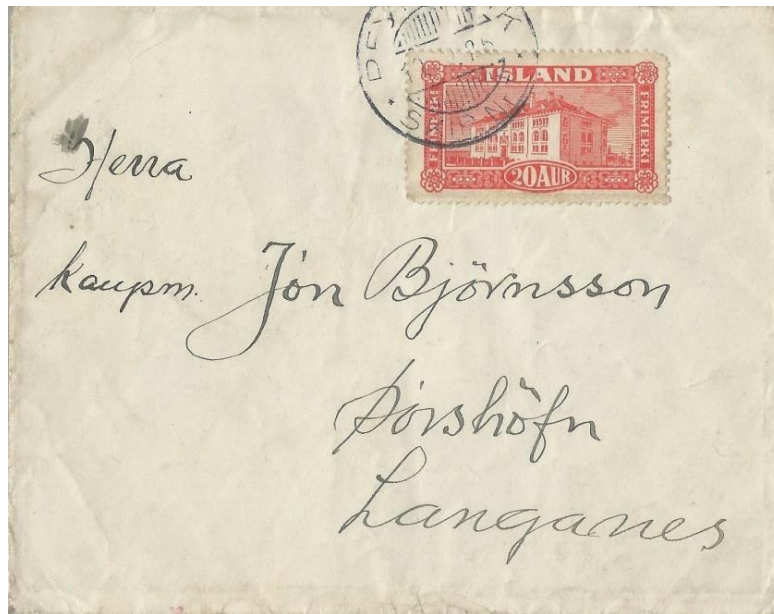 ÍSLAND
FRÍMERKI
20 AUR
Herra
kaupm. Jón Björnsson
Þórshöfn
Langanes